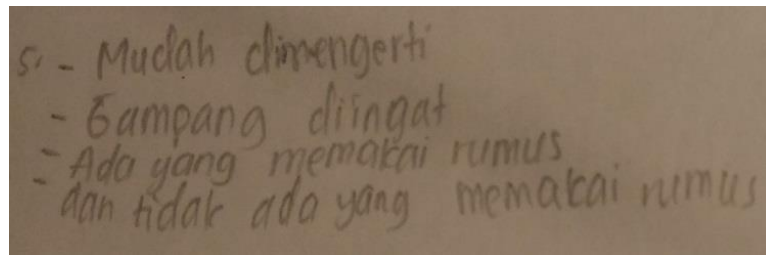 5. - Mudah dimengerti
- Gampang diingat
- Ada yang memakai rumus
- dan tidak ada yang memakai rumus